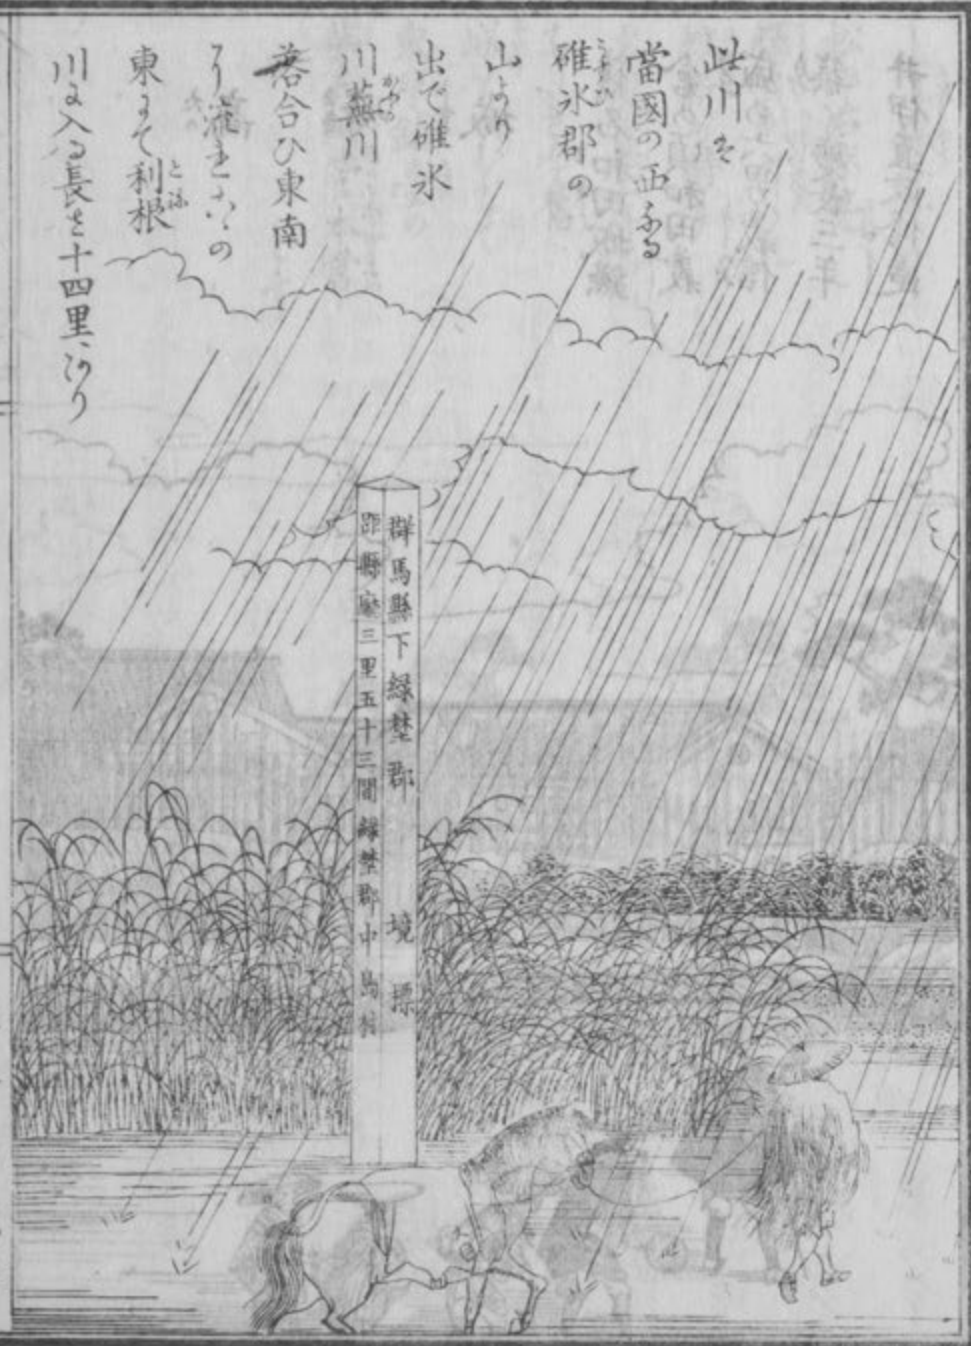 此川ハ
當國の西なる
碓氷郡の
山より
出で碓氷
川蕪川
落合ひ東南
に流れ
東にて利根
川に入る長さ十四里あり
群馬縣下緑埜郡 境標
距縣廳三里五十三間緑埜郡中島村